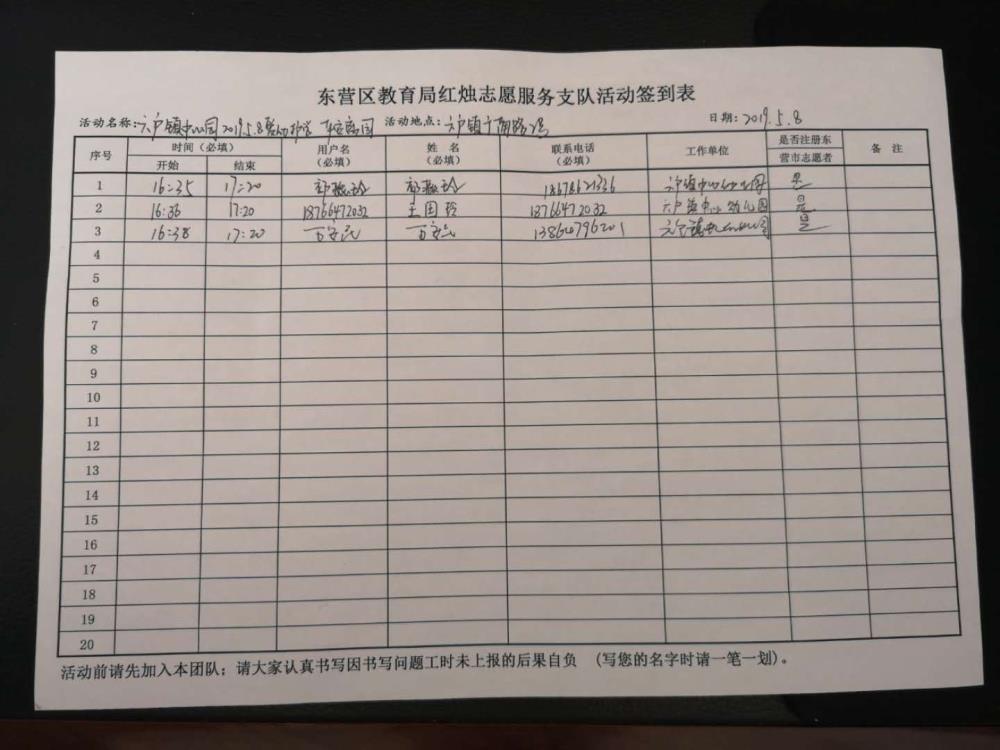 东营区教育局红烛志愿服务支队活动签到表
活动名称:六户镇中心园2019.5.8 护学 活动地点:六户镇 日期:2019.5.8
序号 时间(必填) 用户名(必填) 姓 名(必填) 联系电话(必填) 工作单位 是否注册东营市志愿者 备 注
开始 结束
1 16:35 17:20 18678621336 六户镇中心幼儿园 是
2 16:36 17:20 18766472032 王国玲 18766472032 六户镇中心幼儿园 是
3 16:38 17:20 13864796201 是
4
5
6
7
8
9
10
11
12
13
14
15
16
17
18
19
20
活动前请先加入本团队;请大家认真书写因书写问题工时未上报的后果自负 (写您的名字时请一笔一划)。